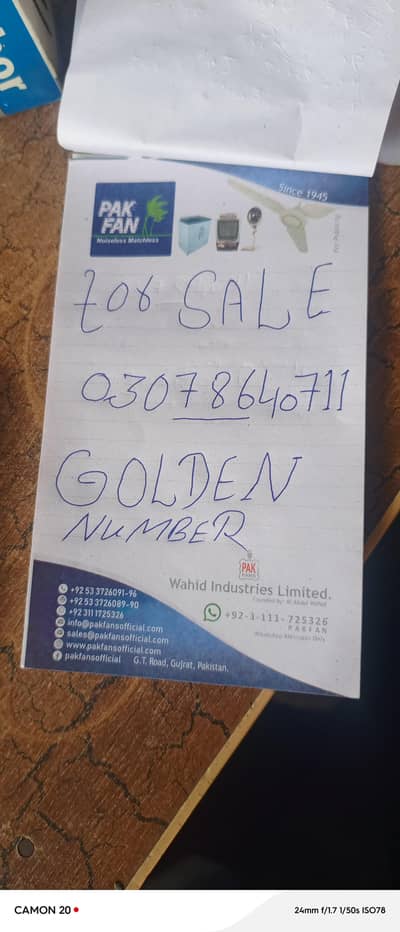 or
PAK
FAN
Noiseless Matchless
Since 1945
for SALE
03078640711
GOLDEN
NUMBER
PAK
FANS
Wahid Industries Limited.
+92 53 3726091-96
+92 53 3726089-90
+92 311 1725326
info@pakfansofficial.com
sales@pakfansofficial.com
www.pakfansofficial.com
pakfansofficial
G.T. Road, Gujrat, Pakistan.
+92-3-111-725326
PAKFAN
WhatsApp Messages Only
CAMON 20
24mm f/1.7 1/50s ISO78